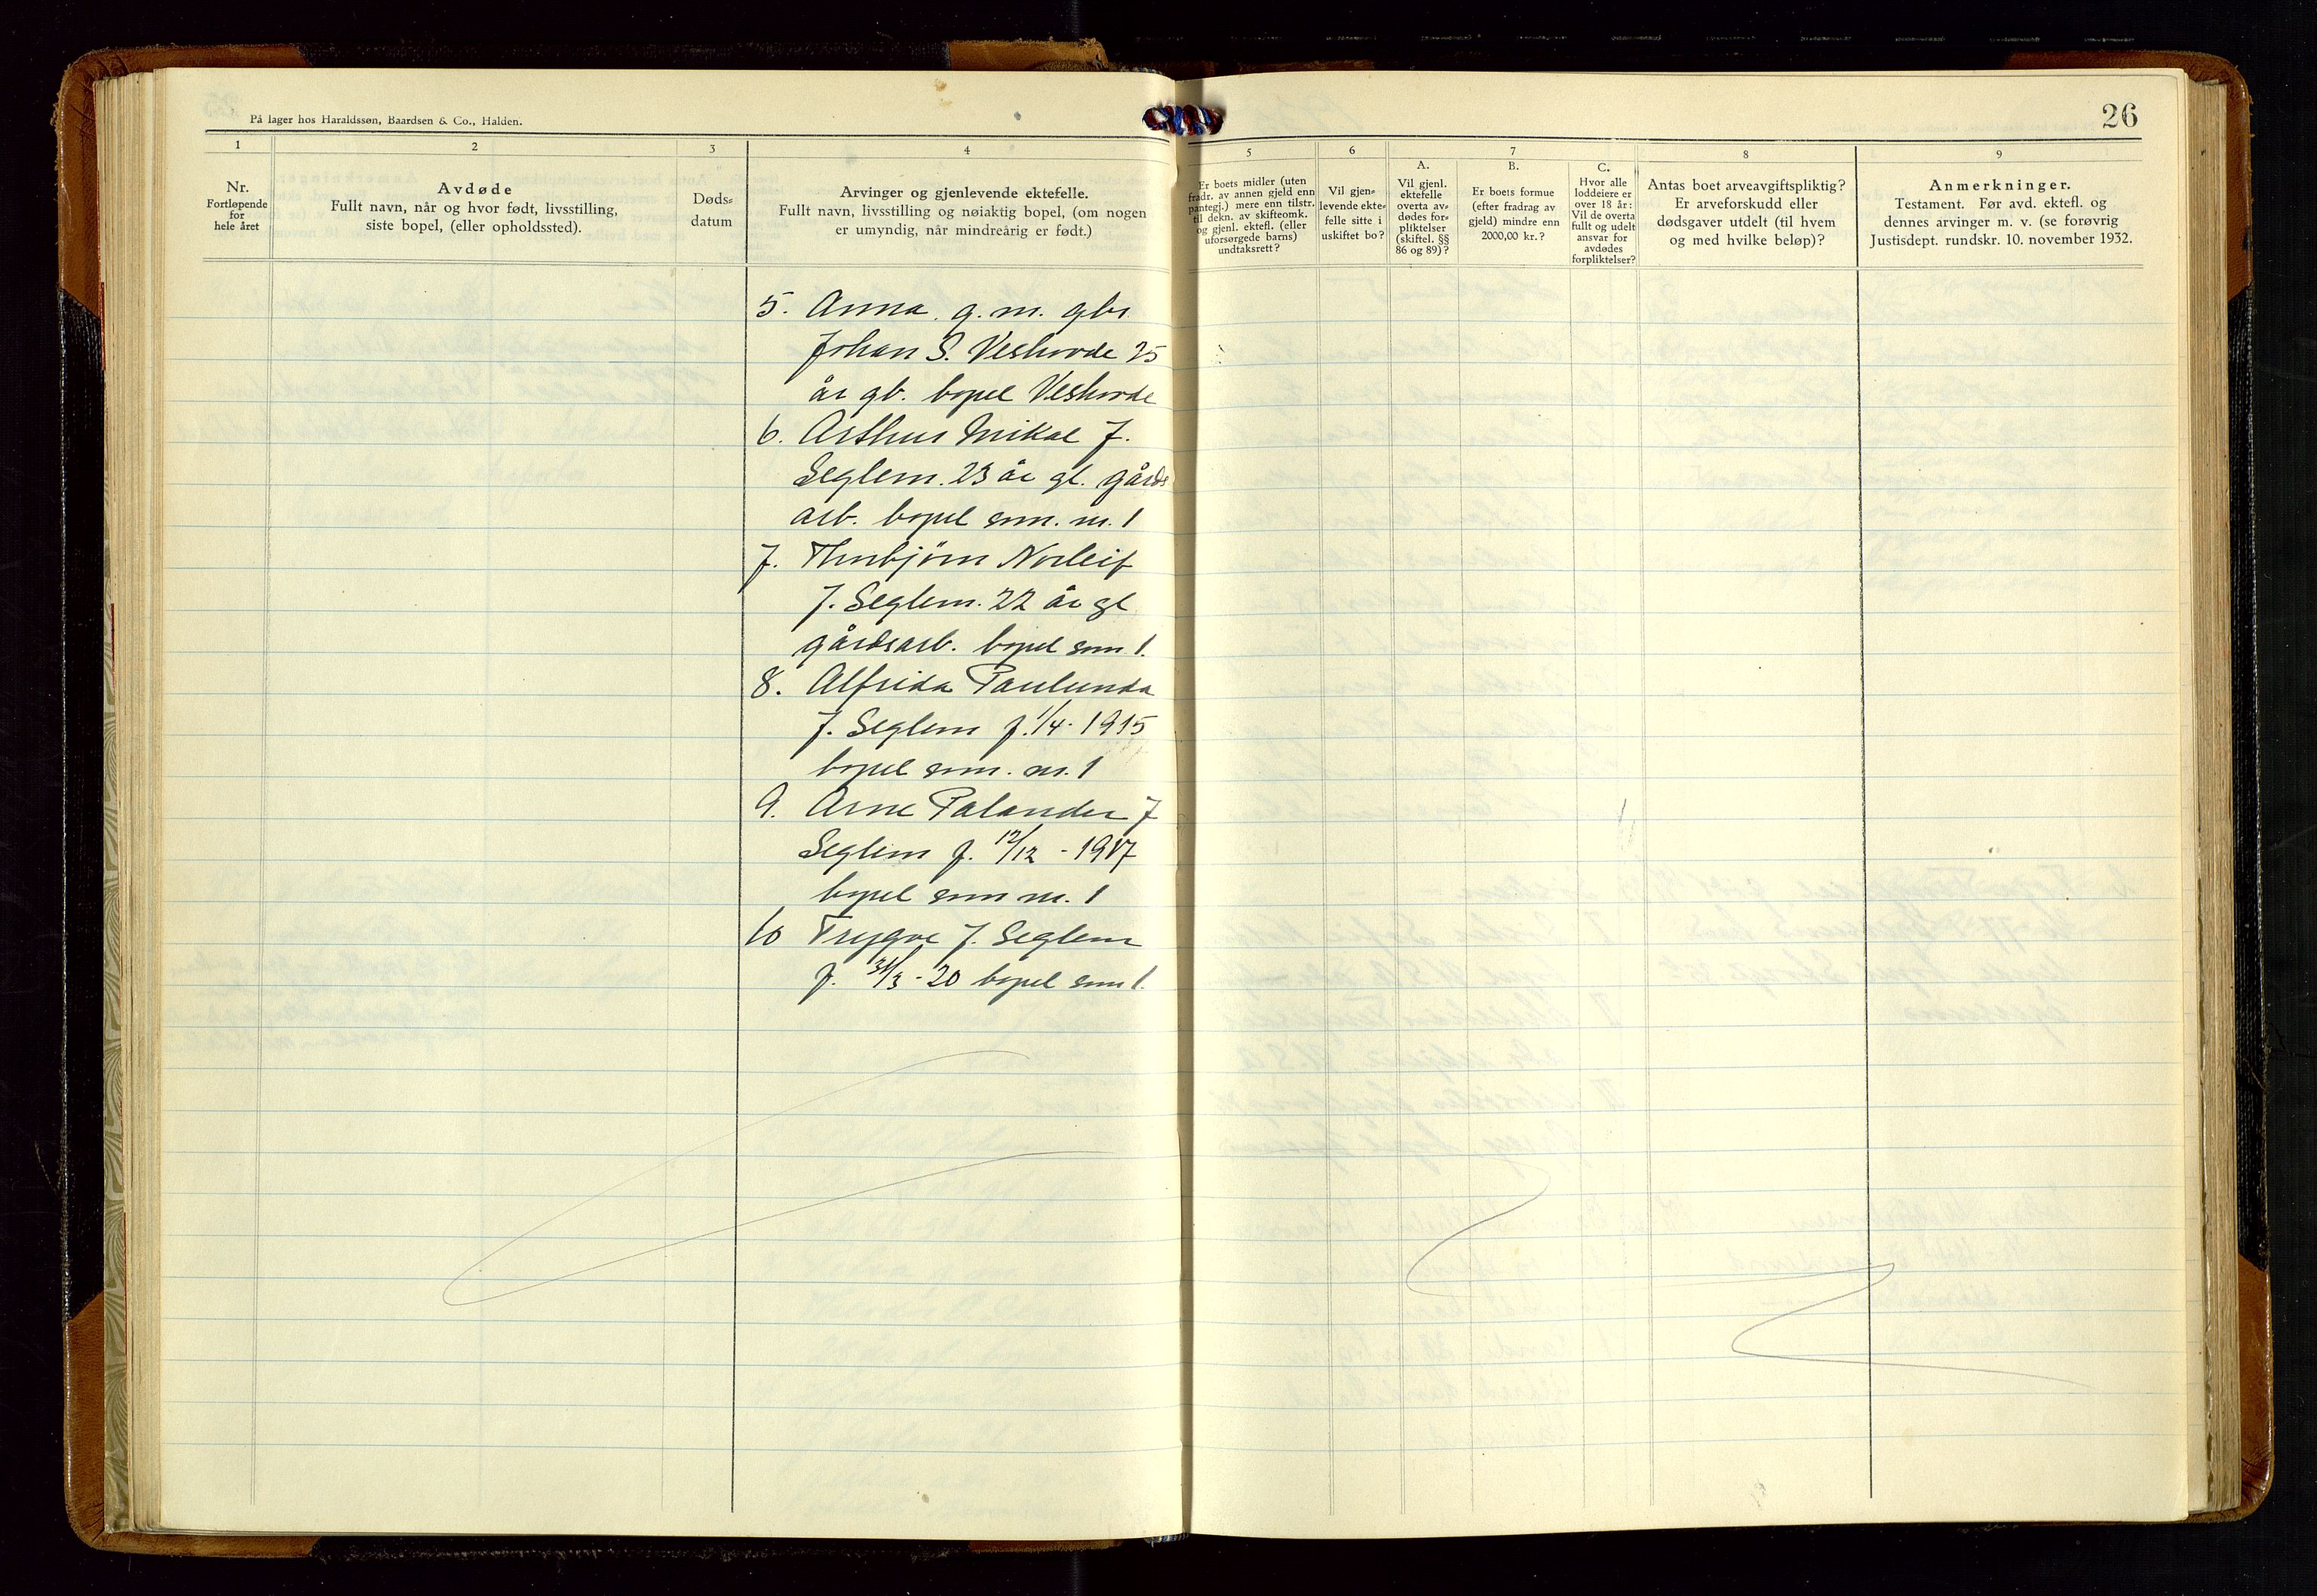 På lager hos Haraldssøn, Baardsen & Co., Halden.
26
1
2
3
4
5
6
7
8
9
Nr.
Fortløpende
for
hele året
Avdøde
Fullt navn, når og hvor født, livsstilling,
siste bopel, (eller opholdssted).
Døds-
datum
Arvinger og gjenlevende ektefelle.
Fullt navn, livsstilling og nøiaktig bopel, (om nogen
er umyndig, når mindreårig er født.)
Er boets midler (uten
fradr. av annen gjeld enn
pantegj.) mere enn tilstr.
til dekn. av skifteomk.
og gjenl. ektefl. (eller
uforsørgede barns)
undtaksrett?
Vil gjen-
levende ekte-
felle sitte i
uskiftet bo?
A.
Vil gjenl.
ektefelle
overta av-
dødes for-
pliktelser
(skiftel. §§
86 og 89)?
B.
Er boets formue
(efter fradrag av
gjeld) mindre enn
2000,00 kr.?
C.
Hvor alle
loddeiere er
over 18 år:
Vil de overta
fullt og udelt
ansvar for
avdødes
forpliktelser?
Antas boet arveavgiftspliktig?
Er arveforskudd eller
dødsgaver utdelt (til hvem
og med hvilke beløp)?
Anmerkninger.
Testament. Før avd. ektefl. og
dennes arvinger m. v. (se forøvrig
Justisdept. rundskr. 10. november 1932.
5. Anna g. m. gbr.
Johan S. Veshovde 25
år gb. bopel Veshovde
6. Arthur Mikal J.
Seglem. 23 år gl. gårds
arb. bopel som nr. 1
7. Thorbjörn Norleif
J. Seglem. 22 år gl
gårdsarb. bopel som 1.
8. Alfrida Paulunda
J. Seglem f. 1/4 - 1915
bopel som nr. 1
9. Arne Palander J
Seglem f. 12/12 - 1917
bopel som nr. 1
10 Trygve J. Seglem
f. 31/3 - 20 bopel som 1.